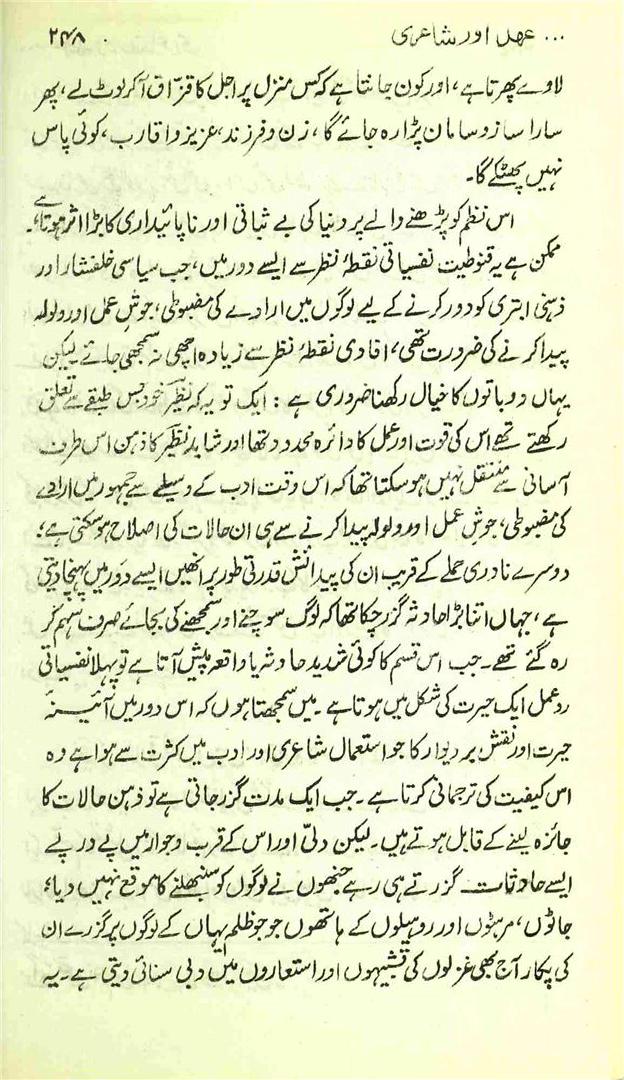 ... عہد اور شاعری ۲۴۸
لادے پھرتا ہے، اور کون جانتا ہے کہ کس منزل پر اجل کا قزّاق آکر لوٹ لے، پھر
سارا سازو سامان پڑا رہ جائے گا، زن و فرزند، عزیز و اقارب، کوئی پاس
نہیں پھٹکے گا۔
اس نظم کو پڑھنے والے پر دنیا کی بے ثباتی اور ناپائیداری کا بڑا اثر ہوتا ہے۔
ممکن ہے یہ قنوطیت نفسیاتی نقطۂ نظر سے ایسے دور میں، جب سیاسی خلفشار اور
ذہنی ابتری کو دور کرنے کے لیے لوگوں میں ارادے کی مضبوطی، جوشِ عمل اور ولولہ
پیدا کرنے کی ضرورت تھی، افادی نقطۂ نظر سے زیادہ اچھی نہ سمجھی جائے لیکن
یہاں دو باتوں کا خیال رکھنا ضروری ہے : ایک تو یہ کہ نظیر خود جس طبقے سے تعلق
رکھتے تھے اس کی قوت اور عمل کا دائرہ محدود تھا اور شاید نظیر کا ذہن اس طرف
آسانی سے منتقل نہیں ہو سکتا تھا کہ اس وقت ادب کے وسیلے سے جمہور میں ارادے
کی مضبوطی، جوشِ عمل اور ولولہ پیدا کرنے سے ہی ان حالات کی اصلاح ہو سکتی ہے؛
دوسرے نادری حملے کے قریب ان کی پیدائش قدرتی طور پر انھیں ایسے دَور میں پہنچا دیتی
ہے، جہاں اتنا بڑا حادثہ گزر چکا تھا کہ لوگ سوچنے اور سمجھنے کی بجائے صرف سہم کر
رہ گئے تھے۔ جب اس قسم کا کوئی شدید حادثہ یا واقعہ پیش آتا ہے تو پہلا نفسیاتی
ردِ عمل ایک حیرت کی شکل میں ہوتا ہے۔ میں سمجھتا ہوں کہ اس دور میں آئینۂ
حیرت اور نقش بر دیوار کا جو استعمال شاعری اور ادب میں کثرت سے ہوا ہے وہ
اس کیفیت کی ترجمانی کرتا ہے۔ جب ایک مدت گزر جاتی ہے تو ذہن حالات کا
جائزہ لینے کے قابل ہوتے ہیں۔ لیکن دلّی اور اس کے قرب و جوار میں پے در پے
ایسے حادثات گزرتے ہی رہے جنھوں نے لوگوں کو سنبھلنے کا موقع نہیں دیا؛
جاٹوں، مرہٹوں اور روہیلوں کے ہاتھوں جو جو ظلم یہاں کے لوگوں پر گزرے ان
کی پکار آج بھی غزلوں کی تشبیہوں اور استعاروں میں دبی سنائی دیتی ہے۔ یہ